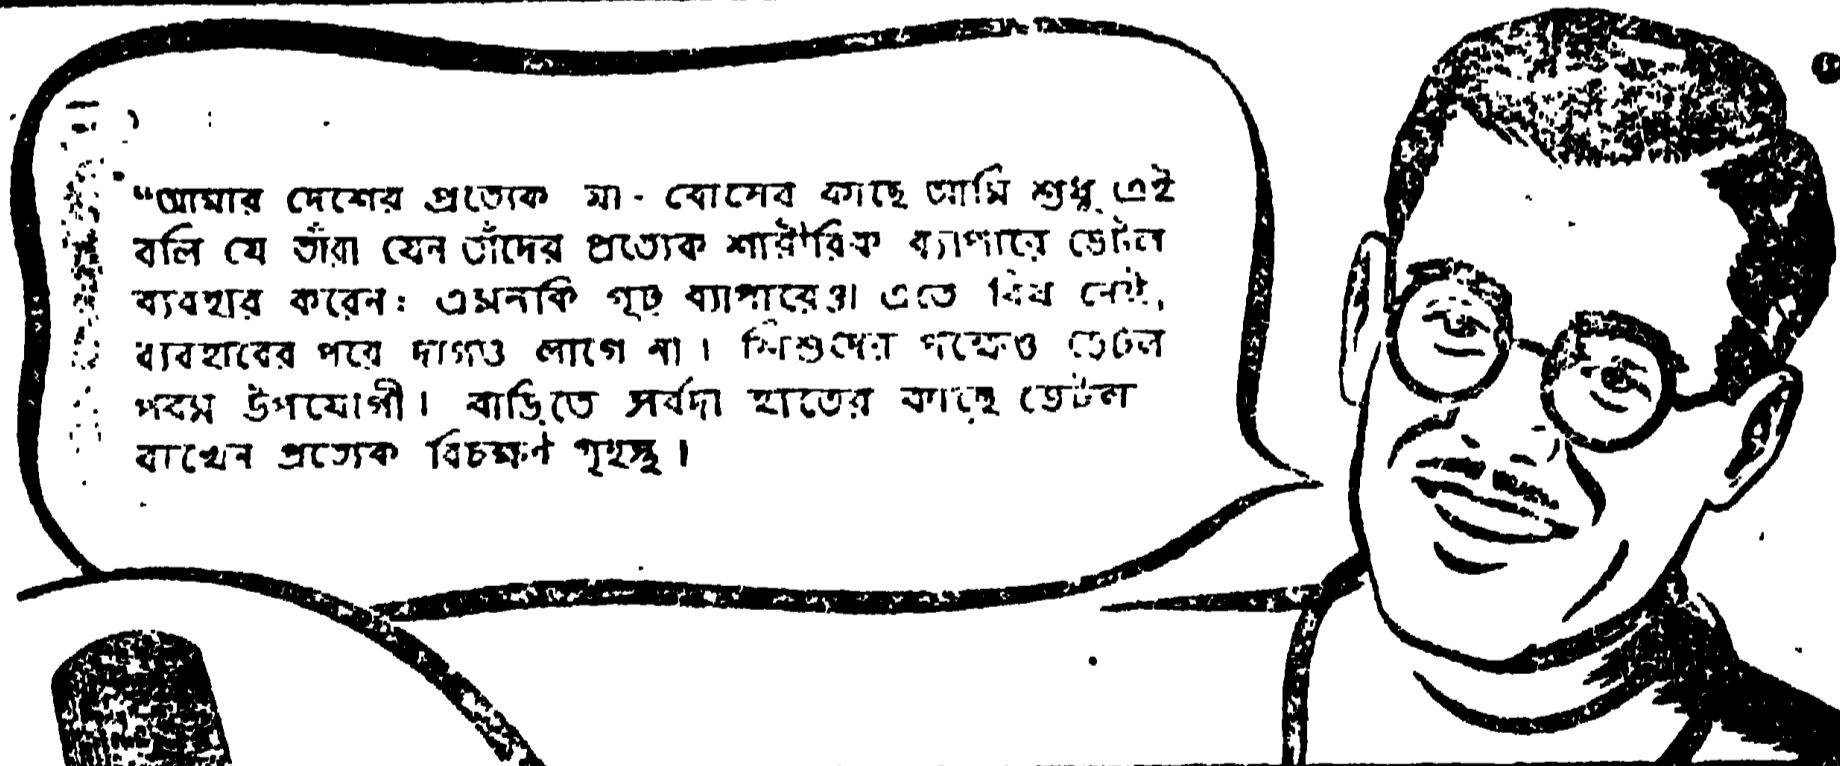 “আমার দেশের প্রত্যেক মা-বোনের কাছে আমি শুধু এই
বলি যে তাঁরা যেন তাঁদের প্রত্যেক শারীরিক ব্যাপারে ডেটল
ব্যবহার করেন: এমনকি গূঢ় ব্যাপারেও। এতে বিষ নেই,
ব্যবহারের পরে দাগও লাগে না। শিশুদের পক্ষেও ডেটল
পরম উপযোগী। বাড়িতে সর্বদা হাতের কাছে ডেটল
রাখেন প্রত্যেক বিচক্ষণ গৃহস্থ।